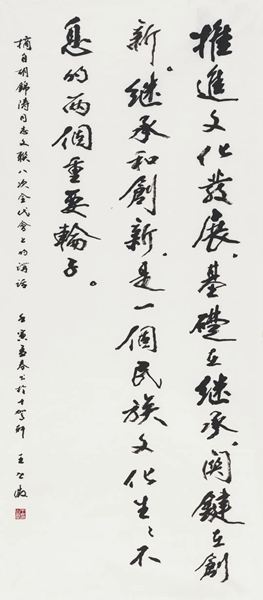 推進文化發展、基礎在繼承、關鍵在創
新。繼承和創新、是一個民族文化生〻不
息的兩個重要輪子。
摘自胡錦濤同志文聯八次全代會上的講話 壬寅春書於十駕軒 王